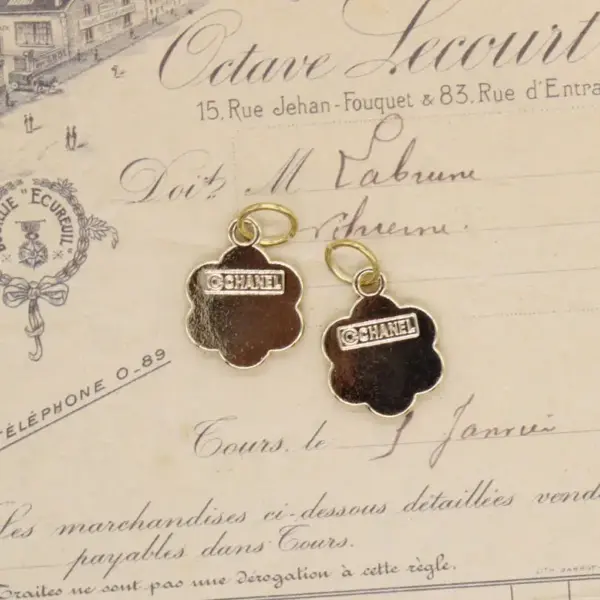 Octave Lecourt
15, Rue Jehan-Fouquet & 83, Rue d'Entra
Doit M Labrune
"ECUREUIL"
©CHANEL
©CHANEL
TÉLÉPHONE 0-89
Tours, le 1 Janvier
Les marchandises ci-dessous détaillées vend
payables dans Tours.
Traites ne sont pas une dérogation à cette règle.